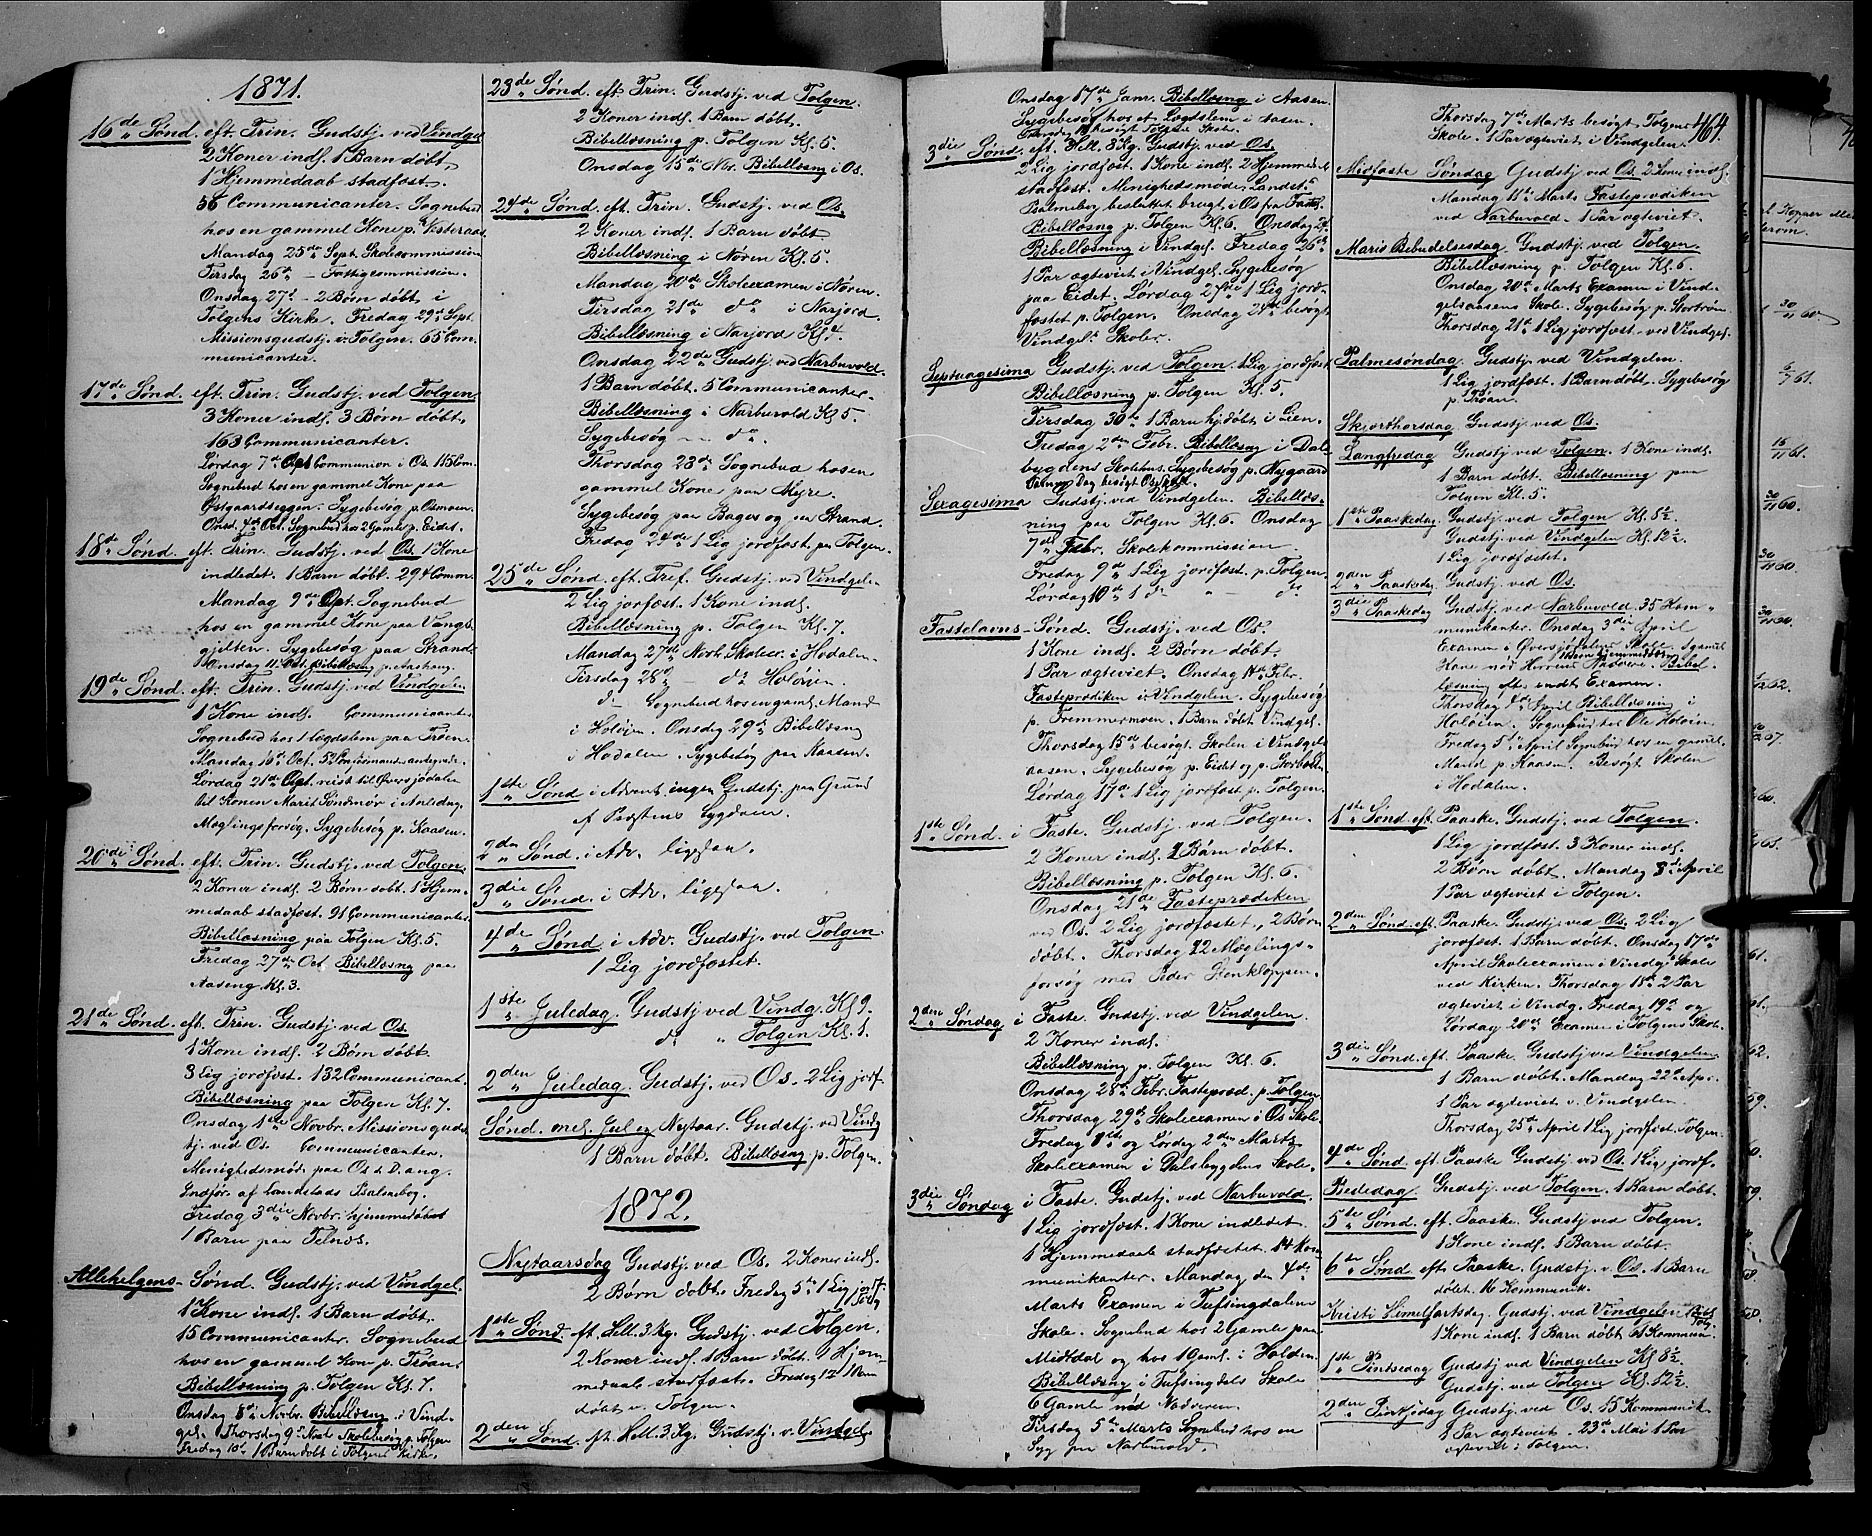 1871.
16de Sønd. eft. Trin. Gudstj. ved Vindgel
2 Koner indl. 1 Barn døbt,
1 Hjemmedaab stadfæst.
56 Communicanter. Sognebud
hos en gammel Kone p. Vesteraas.
Mandag 25de Sept. Skolecommission
Tirsdag 26de — Fattigcommission.
Onsdag 27d — 2 Børn døbt, i
Tolgens Kirke. Fredag 29de Sept.
Missionsgudstj. i Tolgen. 65 Com-
municanter.
17de Sønd. eft. Trin. Gudstj. ved Tolgen
3 Koner indl. 3 Børn døbt,
163 Communicanter.
Lørdag 7de Oct Communion i Os. 115 Com.
Sognebud hos en gammel Kone paa
Østgaardseggen. Sygebesøg p. Osmoen.
Onsd. 4de Oct. Sognebud hos 2 Gamle p. Eidet.
18de Sønd. eft. Trin. Gudstj. ved Os. 1 Kone
indledet. 1 Barn døbt. 29 Comm.
Mandag 9de Oct. Sognebud
hos en gammel Kone paa Vangs-
gjelten. Sygebesøg paa Strand
Onsdag 11. Oct. Bibellæsng p. Aashaug.
19de Sønd. eft. Trin. Gudstj. ved Vindgelen
1 Kone indl. Communicant.
Sognebud hos 1 Lægdslem paa Trøen.
Mandag 16de Oct.
Lørdag 21de Oct. reist til Øversjødalen
til Konen Marit Søndmør i
Mæglingsforsøg. Sygebesøg p. Kaasen.
20de Sønd. eft. Trin. Gudstj. ved Tolgen
2 Koner indl. 2 Børn døbt. 1 Hjem-
medaab stadfæst. 91 Communicanter.
Bibellæsning paa Tolgen Kl. 5.
Fredag 27de Oct. Bibellæsng paa
Aaseng. Kl. 3.
21de Sønd. eft. Trin. Gudstj. ved Os
1 Kone indl. 2 Børn døbt.
3 Lig jordfæst. 132 Communicant.
Bibellæsning paa Tolgen Kl. 7.
Onsdag 1ste Novbr. Missionsguds-
tj. ved Os. Communicanter.
Menighedsmøde paa Os & D. ang.
Indfør. af Landstads Psalmebog.
Fredag 3die Novbr. hjemmedøbt
1 Barn paa Telnæs.
Allehelgens- Sønd. Gudstj. ved Vindgel.
1 Kone indl. 1 Barn døbt.
15 Communicanter. Sognebud
hos en gammel Kone p. Trøan.
Bibellæsning p. Tolgen Kl. 7.
Onsdag 8de Novbr. Bibellæsng i Vind-
gel. Thorsdag 9. Skolebesøg p. Tolgen
Fredag 10de 1 Barn døbt i Tolgens Kirke.
23de Sønd. eft. Trin. Gudstj. ved Tolgen.
2 Koner indl. 1 Barn døbt.
Bibellæsning p. Tolgen Kl. 5.
Onsdag 15de Nov. Bibellæsng i Os.
24de Sønd. eft. Trin. Gudstj. ved Os.
2 Koner indl. 1 Barn døbt.
Bibellæsning i Nøren Kl. 5.
Mandag 20de Skoleexamen i Nøren.
Tirsdag 21de do i Narjord.
Bibellæsning i Narjord Kl. 4.
Onsdag 22de Gudstj. ved Narbuvold.
1 Barn døbt. 5 Communicanter.
Bibellæsning i Narbuvold Kl. 5.
Sygebesøg — do.
Thorsdag 23de Sognebud hos en
gammel Kone paa Mejre.
Sygebesøg paa Bages og paa Strand.
Fredag 24de 1 Lig jordfæst. paa Tolgen.
25de Sønd. eft. Tref. Gudstj. ved Vindgelen
2 Lig jorfæst. 1 Kone indl.
Bibellæsning p. Tolgen Kl. 7.
Mandag 27de Novb. Skoleex. i Hodalen.
Tirsdag 28de — do Holøien.
do Sognebud hos en gaml. Mand
i Holøien. Onsdag 29de Bibellæsng
i Hodalen. Sygebesøg paa Kaasen.
1ste Sønd. i Advent, ingen Gudstj. paa Grund
af Præstens Sygdom.
2den Sønd. i Adv. ligesaa.
3die Sønd. i Adv. ligesaa.
4de Sønd. i Adv. Gudstj. ved Tolgen.
1 Lig jordfæstet.
1ste Juledag. Gudstj. ved Vindg. Kl. 9.
do " Tolgen Kl. 1.
2den Juledag. Gudstj. ved Os. 2 Lig jorf.
Sønd. mel. Jul og Nytaar. Gudstj. ved Vindg
1 Barn døbt. Bibellæsng p. Tolgen.
1872.
Nytaarsdag Gudstj. ved Os. 2 Koner indl.
2 Børn døbt. Fredag 5te 1 Lig jordf.
Tolg
1ste Sønd. eft Hell. 3 Kg. Gudstj. ved Tolgen.
2 Koner indl. 1 Barn døbt. 1 Hjem-
medaab stadfæst. Fredag 12 1 Barn
døbt v. Tolgen.
2den Sønd. eft. Hell. 3 Kg. Gudstj. v. Vindgel.
Onsdag 17de Janr. Bibellæsng i Aasen.
Sygebesøg hos et Lægdslem i Aasen.
besøgt Tolgens Skole.
3die Sønd. eft. Hell. 3 Kg. Gudstj. ved Os.
2 Lig jordfæst. 1 Kone indl. 2 Hjemmed.
stadfæst. Menighedsmøde, Landst.
Psalmebog besluttet brugt i Os fra Faste.
Bibellæsng p. Tolgen Kl. 6. Onsdag 24.
Bibellæsning i Vindgel. Fredag 26de
1 Par ægteviet i Vindgel. Sygebesøg
paa Eidet. Lørdag 27de 1 Lig jord-
fæstet p. Tolgen. Onsdag 24de besøgt
Vindgls Skoler.
Septuagesima Gudstj. ved Tolgen. 1 Lig jordfæst
Bibellæsning p. Tolgen Kl. 5.
Tirsdag 30te 1 Barn hjdøbt i Lien.
Fredag 2den Febr. Bibellæsng i Dal-
bygdens Skolehus. Sygebesøg p. Nygaard
Samme Dag besøgt Os Skole.
Sexagesima Gudstj. ved Vindgelen. Bibellæs-
ning paa Tolgen Kl. 6. Onsdag
7de Febr. Skolekommission
Fredag 9de 1 Lig jordfæst. p. Tolgen.
Lørdag 10de 1 do " do
Fastelavns- Sønd. Gudstj. ved Os.
1 Kone indl. 2 Børn døbt.
1 Par ægteviet. Onsdag 14de Febr.
Fasteprædiken i Vindgelen. Sygebesøg
p. Fremmermoen. 1 Barn døbt Vindgel.
Thorsdag 15de besøgt Skolen i Vindgel-
aasen. Sygebesøg p. Eidet og p.
Lørdag 17de 1 Lig jordfæst p. Tolgen.
1ste Sønd. i Faste. Gudstj. ved Tolgen.
2 Koner indl. 2 Børn døbt.
Bibellæsning p. Tolgen Kl. 6.
Onsdag 21de Fasteprædiken
ved Os. 2 Lig jordfæstet, 2 Børn
døbt. Thorsdag 22 Mæglings-
forsøg med Peder Stenkloppen.
2den Søndag i Faste. Gudstj. ved Vindgelen.
2 Koner indl.
Bibellæsning p. Tolgen Kl. 6.
Onsdag 28de Febr. Fasteprød. p. Tolgen
Thorsdag 29de Skoleexamen i Os Skole.
Fredag 1ste og Lørdag 2den Marts
Skoleexamen i Dalsbygdens Skole.
3die Søndag i Faste. Gudstj. ved Narbuvold.
1 Lig jordfæst. 1 Kone indledet.
1 Hjemmedaab stadfæstet. 14 Kom-
munikanter. Mandag den 4de
Marts Examen i Tufsingdalens
Skole. Sognebud hos 2 Gamle paa
Midtdal og hos 1 Gaml. i Holden.
Bibellæsng i Tufsingdals Skole
6 Gamle ved Nadveren.
Tirsdag 5te Marts Sognebud hos en
Syg paa Narbuvold.
464.
Thorsdag 7de Marts besøgt Tolgens
Skole. 1 Par ægteviet i Vindgelen.
Midfaste Søndag Gudstj. ved Os. 2 Koner indl.
Mandag 11te Marts Fasteprædiken
ved Narbuvold. 1 Par ægteviet.
Mariæ Bebudelsesdag. Gudstj. ved Tolgen.
Bibellæsning p. Tolgen Kl. 6.
Onsdag 20de Marts Examen i Vind-
gelaasens Skole. Sygebesøg p. Stortrøn.
Thorsdag 21de 1 Lig jordfæst. ved Vindgel.
Palmesøndag. Gudstj. ved Vindgelen.
1 Lig jordfæst. 1 Barn døbt. Sygebesøg
p. Trøan.
Skjærthorsdag Gudstj. ved Os.
Langfredag Gudstj. ved Tolgen. 1 Kone indl.
1 Barn døbt. Bibellæsning paa
Tolgen Kl. 5.
1ste Paaskedag. Gudstj. ved Tolgen Kl. 8½
Gudstj. ved Vindgelen Kl. 12½
1 Lig jordfæstet.
2den Paaskedag Gudstj. ved Os.
3die Paaskedag Gudstj. ved Narbuvold. 35 Kom-
munikanter. Onsdag 3die April
Examen i Øversjødalens Skole. 1 gamel
Kone Nadvere. Bibel-
læsning eft. endt Examen.
Thorsdag 4de April Bibellæsning i
Holøien. Sognebud hos Ole Holøien.
Fredag 5te April Sognebud hos en gamel
Mand p. Kaasen. Besøgt Skolen
i Hodalen.
1ste Sønd. eft Paaske. Gudstj. ved Tolgen.
1 Lig jordfæst. 3 Koner indl.
2 Børn døbt. Mandag 8de April
1 Par ægteviet i Tolgen.
2den Sønd. eft. Paaske. Gudstj. ved Os. 2 Lig
jordfæst. 1 Barn døbt. Onsdag 17de
April Skoleexamen i Vindgls Skole
ved Kirken. Thorsdag 18de 2 Par
ægteviet i Vindg. Fredag 19de og
Lørdag 20de Examen i Tolgens Skole.
3die Sønd. eft. Paaske. Gudstj. ved Vindgelen
1 Barn døbt. Mandag 22de Apr.
1 Par ægteviet v. Vindgelen.
Thorsdag 25de April 1 Lig jordfæst. Tolgen.
4de Sønd. eft. Paaske Gudstj. ved Os. 1 Lig jordf.
Bededag. Gudstj. ved Tolgen. 1 Barn døbt.
5te Sønd. eft. Paaske. Gudstj. ved Tolgen.
1 Kone indl. 1 Barn døbt.
6te Sønd. eft. Paaske. Gudstj. v. Os. 1 Barn
døbt. 16 Kommunik.
Kristi Himelfartsdag. Gudstj. ved Vindgelen
1 Kone indl. 1 Barn døbt 61 Kommun.
1ste Pintsedag Gudstj. ved Vindgelen Kl 8½.
Gudstj. ved Tolgen Kl. 12½.
2den Pintsedag Gudstj. ved Os. 15 Kommunik-
1 Par ægteviet. 23de Mai 1 Par
ægteviet i Tolgen.